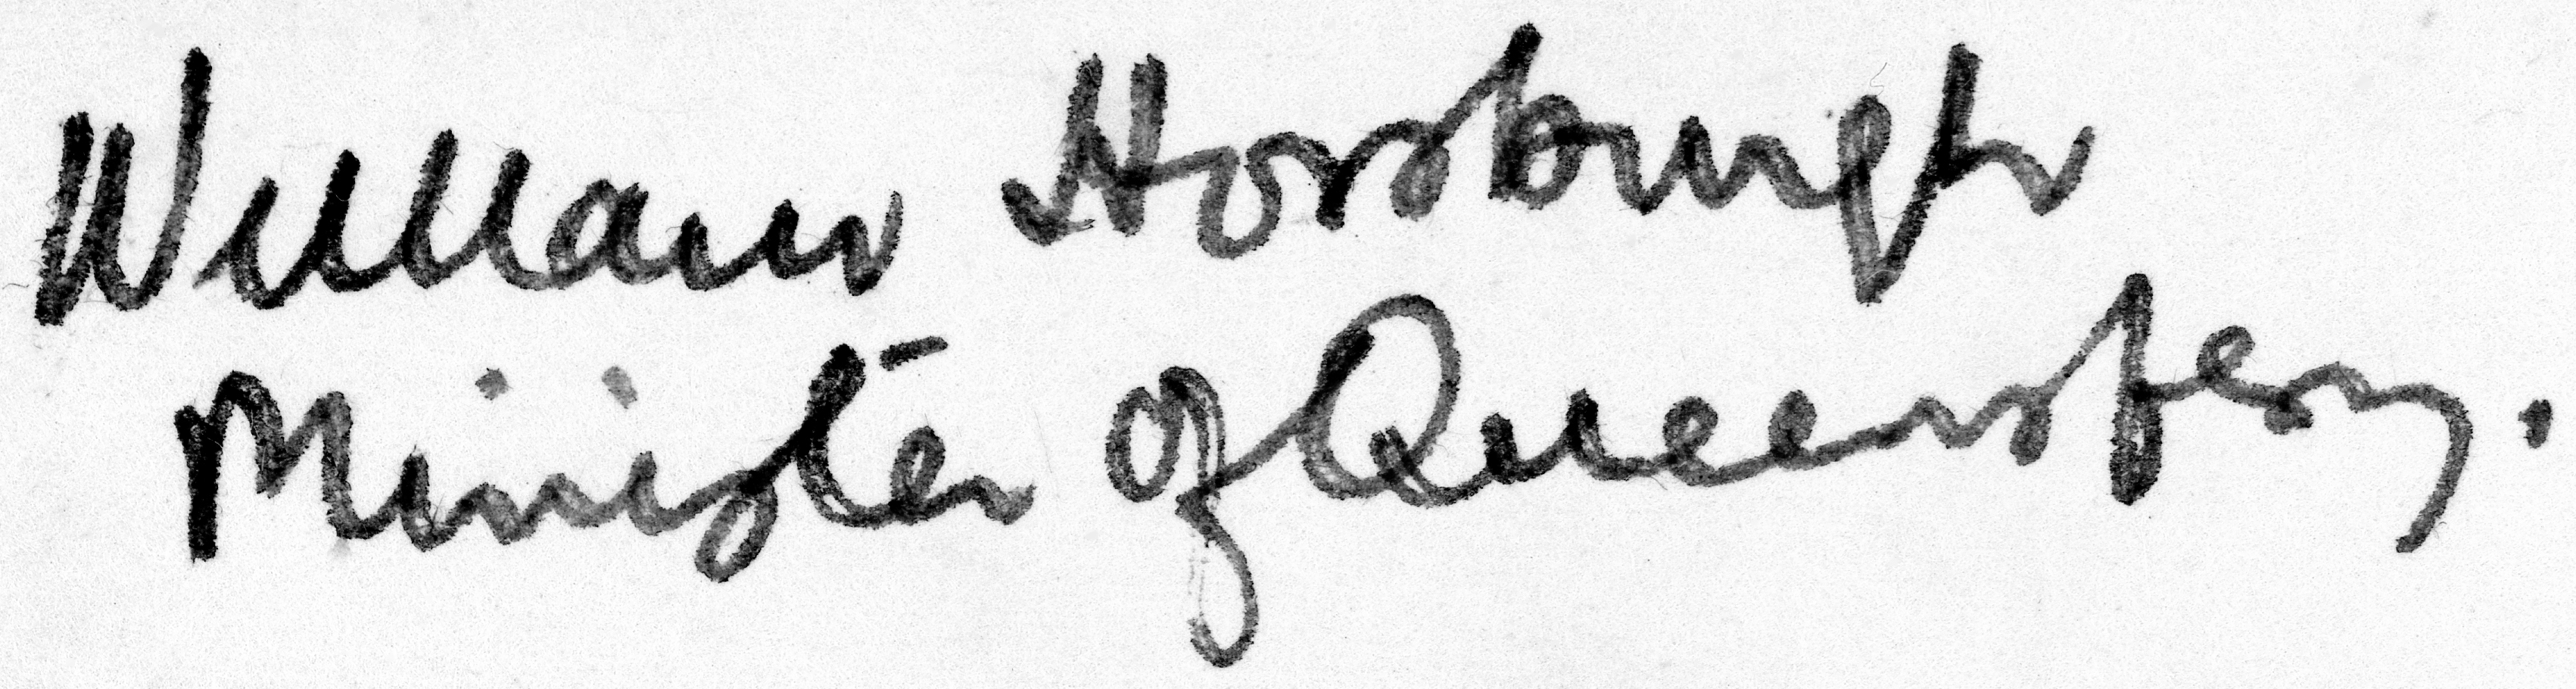 William Horsburgh
Minister of Queensferry.